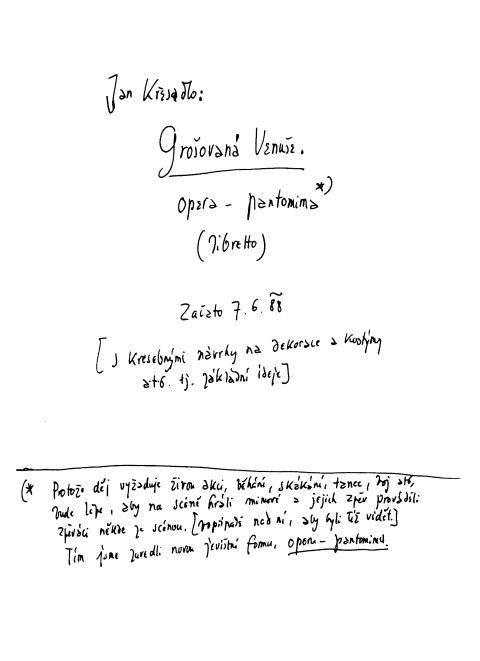 Jan Křesadlo:
Grošovaná Venuše.
opera - pantomima *)
(libretto)
Začato 7. 6. 88
[s kresebnými návrhy na dekorace a kostýmy
atd. tj. základní ideje]
(* Protože děj vyžaduje živou akci, běhání, skákání, tance, boj atd,
bude lépe, aby na scéně hráli mimové a jejich zpěv prováděli
zpěváci někde za scénou. [popřípadě nad ní, aby byli též vidět.]
Tím jsme zavedli novou jevištní formu, operu - pantomimu.